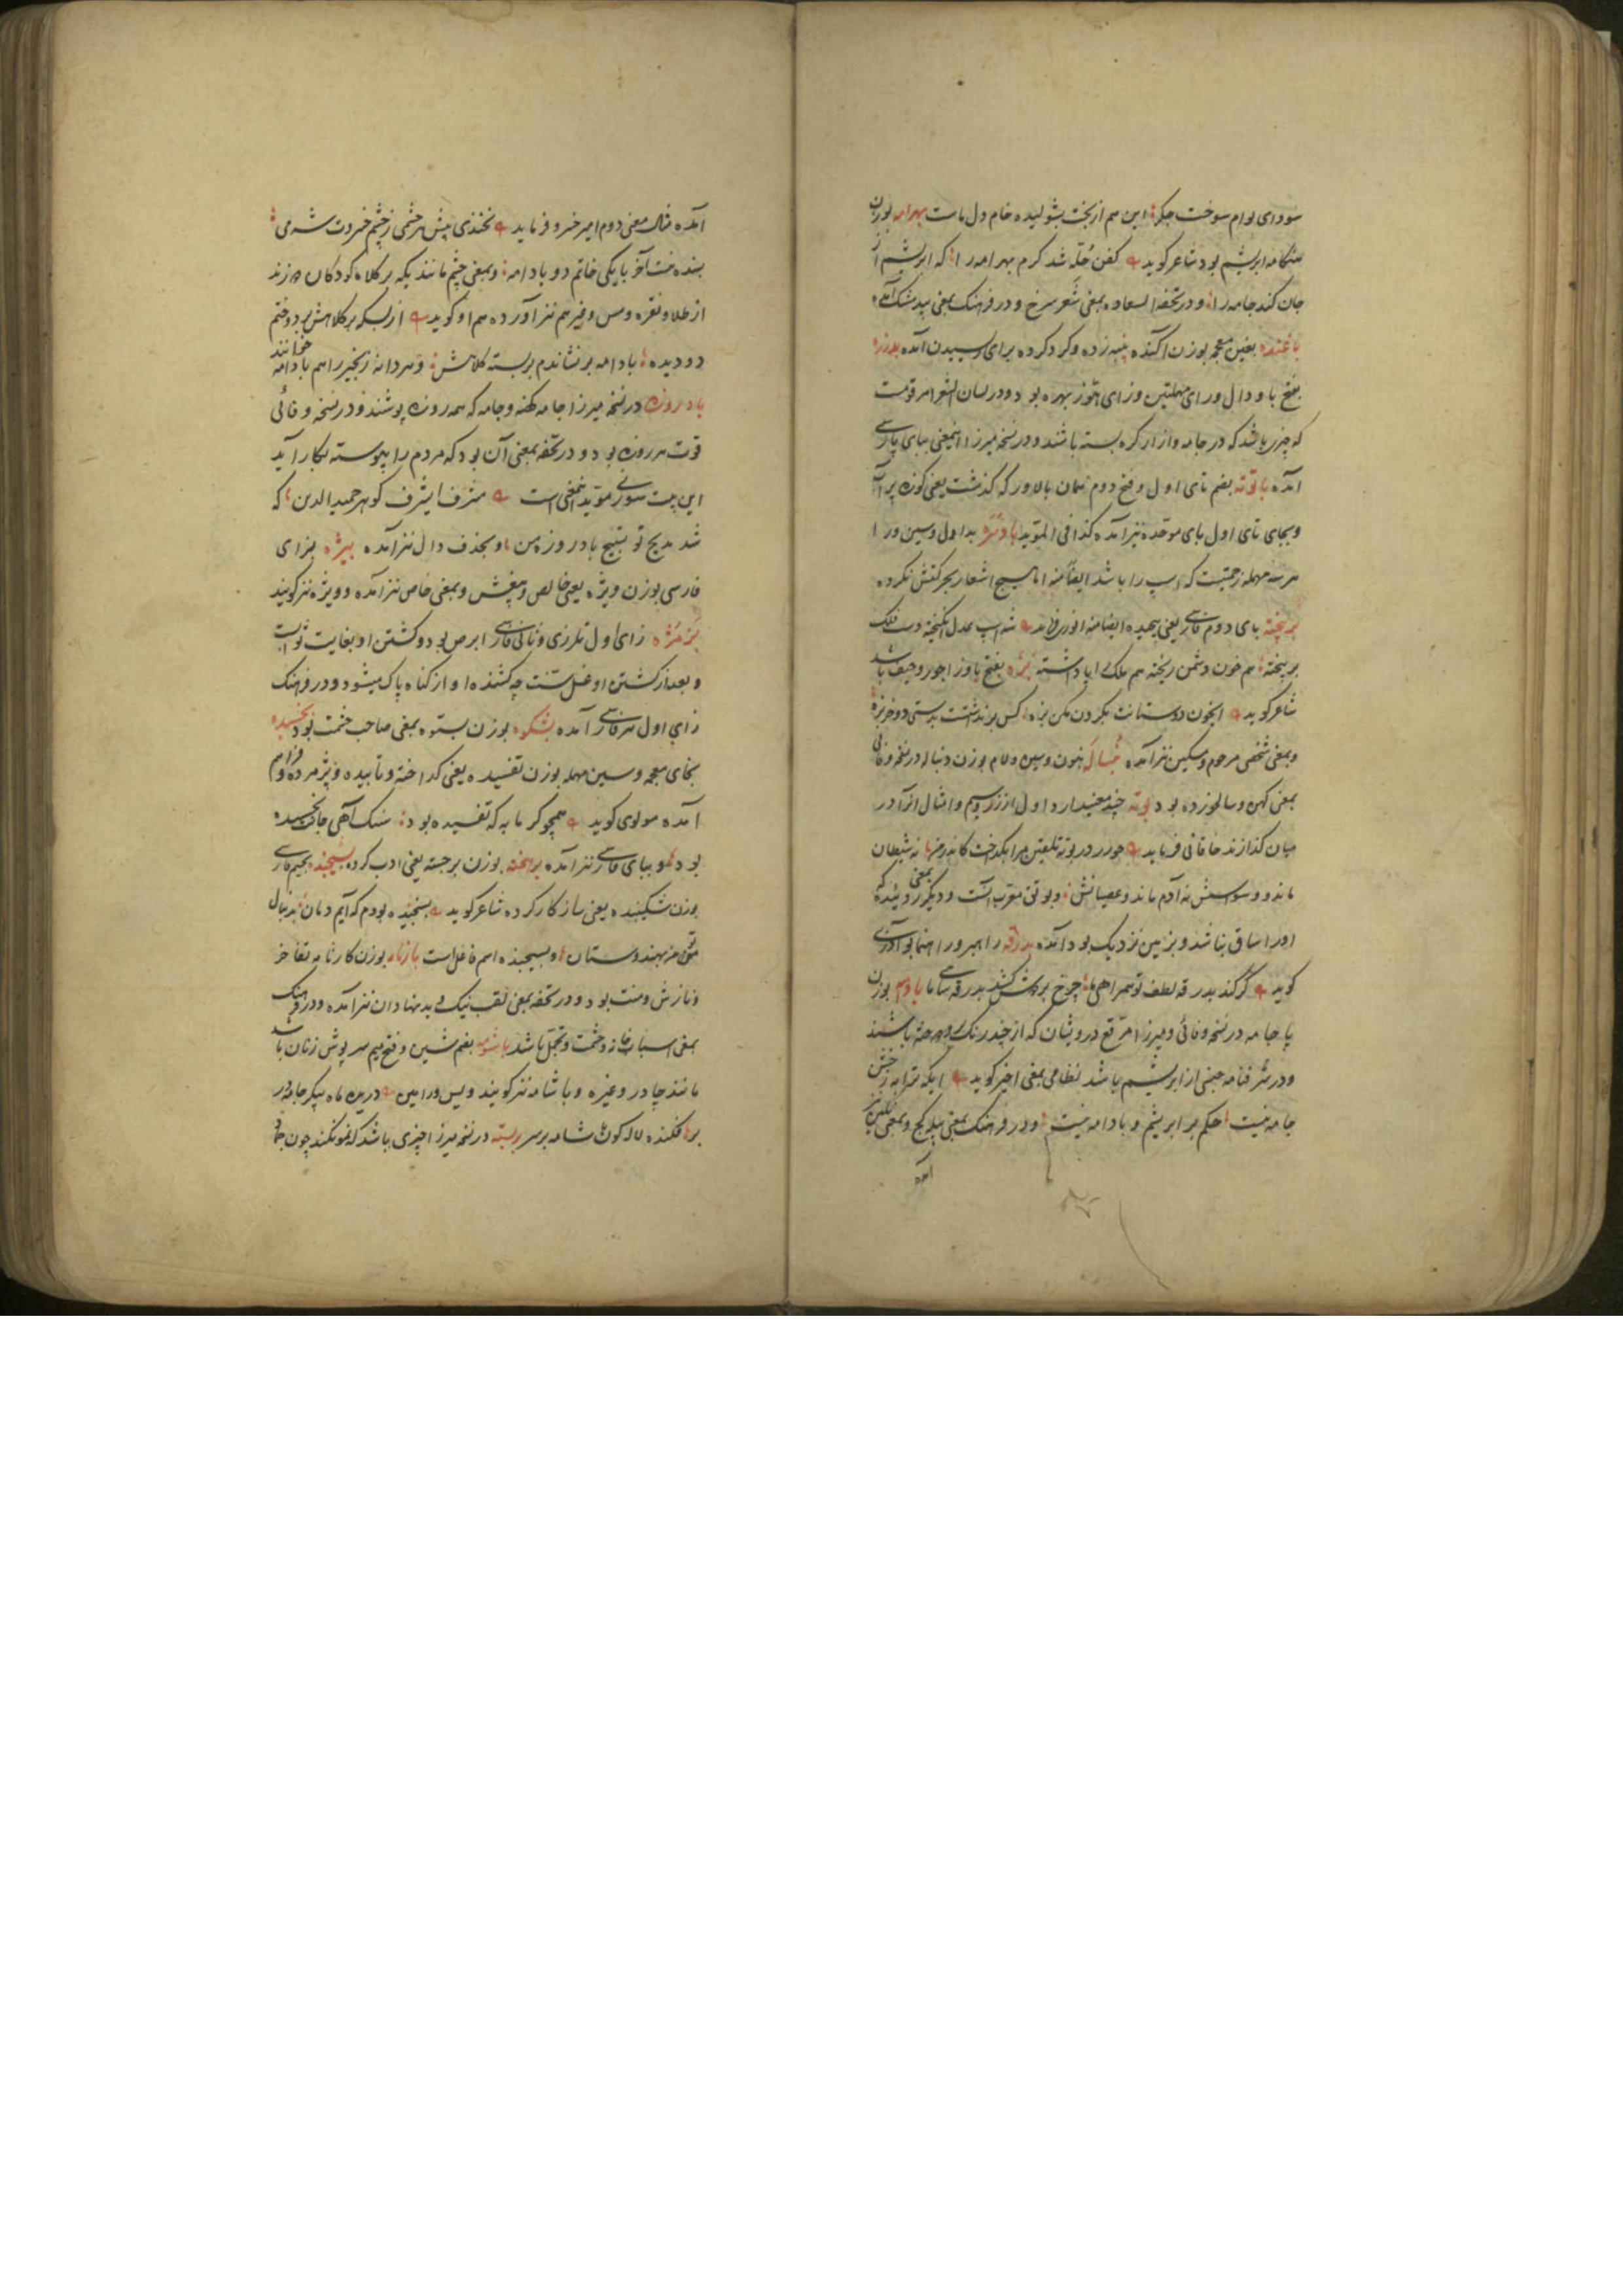 سودای توام سوخت جگر این هم از بخت بشولیده خام دل ماست بهرامه بوزن
هنگامه ابریشم بود شاعر گوید کفن حله شد کرم بهرامه را که ابریشم از
جان کند جامه را و در تحفة السعاده بمعنی شعر سرخ و در فرهنگ بمعنی بیدمشک آمده
باغنده بغین معجمه بوزن آکنده پنبه زده و گرد کرده برای ریسیدن آمده بدرزه
بفتح با و دال و رای مهملتین و زای هوز بهره بود و در لسان الشعرا مرقومست
که چیزی باشد که در جامه و ازار گره بسته باشند و در نسخه میرزا اینمعنی ببای پارسی
آمده باتوته بضم تای اول و فتح دوم همان بالاور که گذشت یعنی کوزه پر آب
و بجای تای اول بای موحده نیز آمده کذا فی المؤید بادسره بدال و سین و را
هر سه مهمله زحمتیست که اسپ را باشد ایضا منه اما هیچ اشعار بحرکتش نکرده
بربیخته بای دوم فارسی یعنی پیچیده ایضا منه انوری فرماید شه اسپ عدل انگیخته دست فلک
بربیخته هم خون دشمن ریخته هم ملک آباد داشته بزه بفتح با و زا جور و حیف باشد
شاعر گوید ایخون دوستانت بگردن مکن بزه کس برنداشتست بدستی دو خربزه
و بمعنی شخص مرحوم و مسکین نیز آمده بنساله بنون و سین و لام بوزن دنباله در نسخه وفائی
بمعنی کهن و سالخورده بود بوته چند معنی دارد اول آنکه زر و سیم و امثال آنرا در
میان گدازند خاقانی فرماید چو زر در بوته تلقین مرا بگداخت کاندر من نه شیطان
ماند و وسواسش نه آدم ماند و عصیانش و بوتق معرب آنست و دیگر بمعنی روئیده که
اورا ساق نباشد و بزمین نزدیک بود آمده بدرقه راهبر و راهنما بود آذری
گوید گر کند بدرقه لطف تو همراهی ما چرخ بر دوش کشد بدرقه سامان ما بادامه بوزن
با جامه در نسخه وفائی و میرزا مرقع درویشان که از چند رنگ دوخته باشند
و در شرفنامه جنسی از ابریشم باشد نظامی بمعنی اخیر گوید ایکه ترا به ز خشن
جامه نیست حکم بر ابریشم و بادامه نیست و در فرهنگ بمعنی پیله کج و بمعنی نگین نیز
آمده
آمده مثال معنی دوم امیر خسرو فرماید نخندی پیش هر چشمی ز چشم خسروت شرمی
بسنده نیست آخر با یکی خاتم دو بادامه و بمعنی چشم مانند یکه بر کلاه کودکان دوزند
از طلا و نقره و مس و غیر هم نیز آورده هم او گوید از بسکه بر کلاهش بر دوختم
دو دیده بادامه بر نشاندم بر بسته کلاهش و هر دانه زنجیر را هم بادامه خوانند
بادروزه در نسخه میرزا جامه کهنه و جامه که همه روزه پوشند و در نسخه وفائی
قوت هر روزه بود و در تحفه بمعنی آن بود که مردم را پیوسته بکار آید
این بیت سوزنی مؤید اینمعنی است مشرف ایشرف گوهر حمید الدین که
شد مدیح تو تسبیح بادروزه من و بحذف دال نیز آمده بیژه بزای
فارسی بوزن ویژه یعنی خالص و بیغش و بمعنی خاص نیز آمده و ویژه نیز گویند
بزمژه زای اول تازی و ثانی فارسی ابرص بود و کشتن او بغایت ثوابست
و بعد از کشتن او غسل سنت چه کشنده او از گناه پاک میشود و در فرهنگ
زای اول هم فارسی آمده بشکوه بوزن ستوه بمعنی صاحب حشمت بود بخسیده
بخای معجمه و سین مهمله بوزن تفسیده یعنی گداخته و تابیده و پژمرده و فراهم
آمده مولوی گوید همچو گرمابه که تفسیده بود تنگ آئی جانت بخسیده
بود و ببای فارسی نیز آمده برهخته بوزن برجسته یعنی ادب کرده بسیجیده بجیم فارسی
بوزن شکیبیده یعنی ساز کار کرده شاعر گوید بسیجیده بودم که آیم دمان بدنبال
تو من بهندوستان و بسیجنده اسم فاعل است بارنامه بوزن کارنامه تفاخر
و نازش و منت بود و در تحفه بمعنی لقب نیک که به بدنهادان نیز آمده و در فرهنگ
بمعنی اسباب خانه و حشمت و تجمل باشد باشومه بضم شین و فتح میم سرپوش زنان باشد
مانند چادر و غیره و باشامه نیز گویند ویس و رامین درین ماه پیکر جامه در
بر فکنده لاله گون شامه بر سر بربسته در نسخه میرزا چیزی باشد که نمو نکند چون جماد